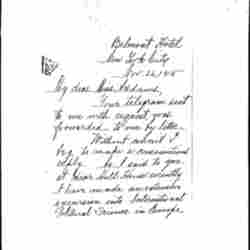 Belmont Hotel
New York City
Nov. 26/15
My dear Miss Addams,
Your telegram sent
to me with request was
forwarded to me by letter.
Without advice I
beg to make a
reply. As I said to you
at Hull House recently
I have made an extensive
excursion into International
Political Science in Europe